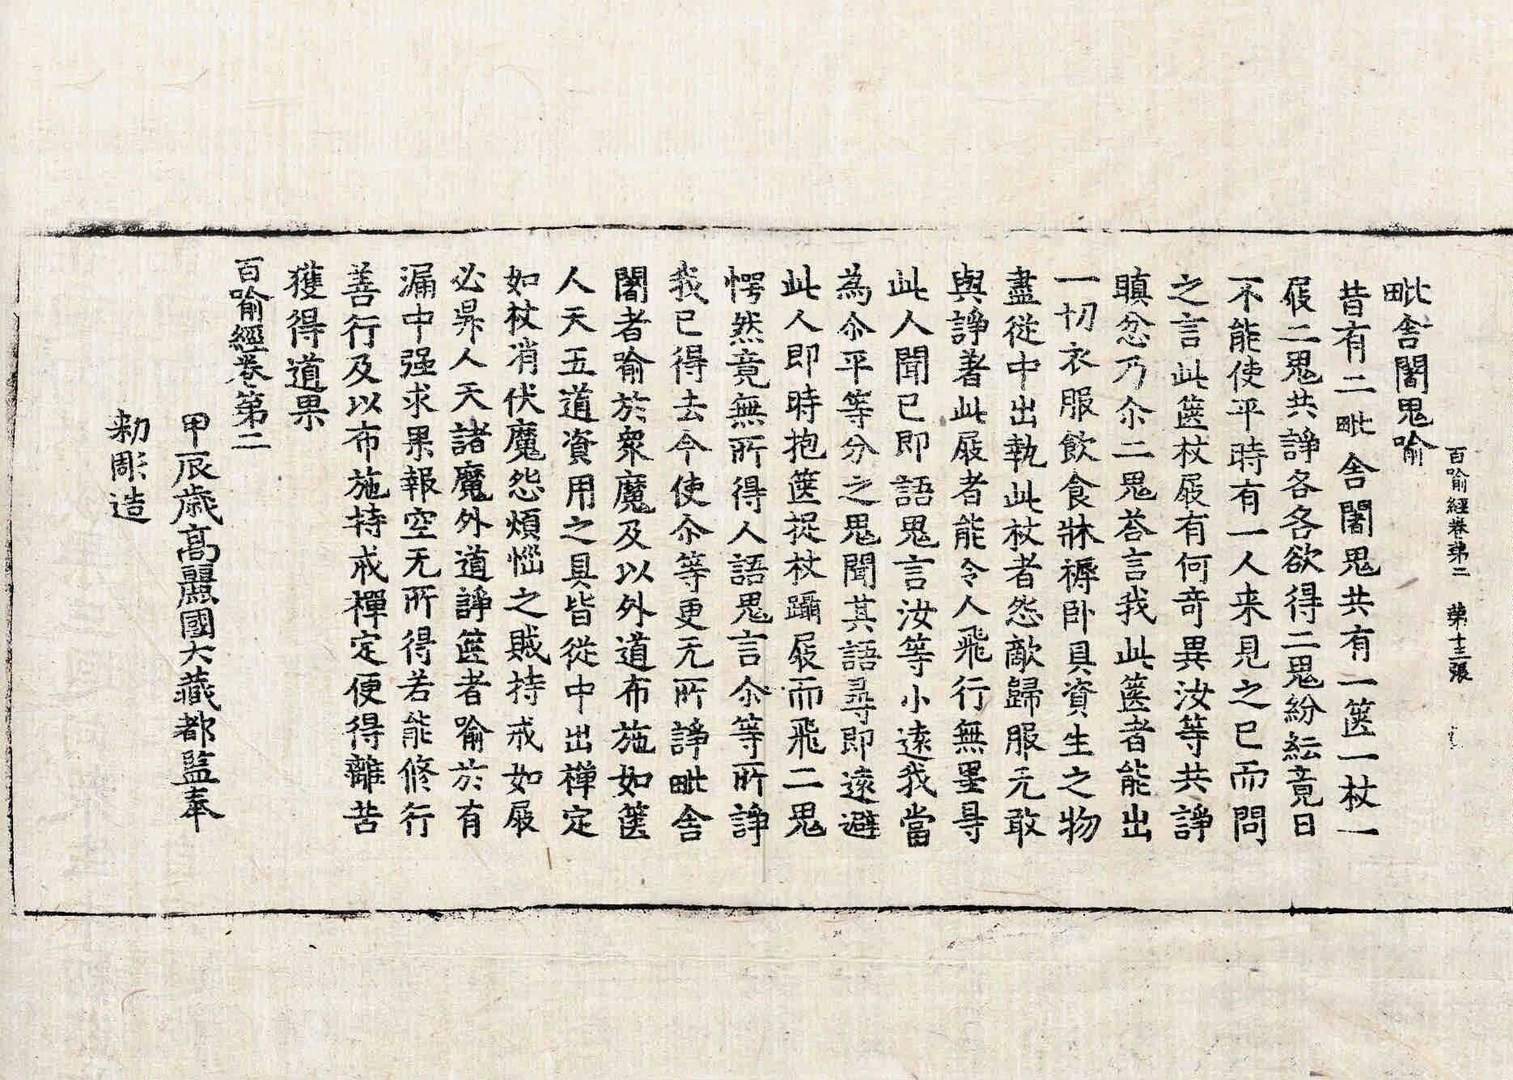 百喻經卷第二　第十三張
毗舍闍鬼喻
昔有二毗舍闍鬼共有一篋一杖一
屐二鬼共諍各各欲得二鬼紛紜竟日
不能使平時有一人来見之已而問
之言此篋杖屐有何奇異汝等共諍
瞋忿乃尒二鬼荅言我此篋者能出
一切衣服飲食牀褥卧具資生之物
盡從中出執此杖者怨敵歸服无敢
與諍著此屐者能令人飛行無罣㝵
此人聞已即語鬼言汝等小遠我當
為尒平等分之鬼聞其語尋即遠避
此人即時抱篋捉杖躡屐而飛二鬼
愕然竟無所得人語鬼言尒等所諍
我已得去今使尒等更无所諍毗舍
闍者喻於衆魔及以外道布施如篋
人天五道資用之具皆從中出禪定
如杖消伏魔怨煩惱之賊持戒如屐
必昇人天諸魔外道諍篋者喻於有
漏中强求果報空无所得若能修行
善行及以布施持戒禪定便得離苦
獲得道果
百喻經卷第二
甲辰歲高麗國大藏都監奉
勑彫造